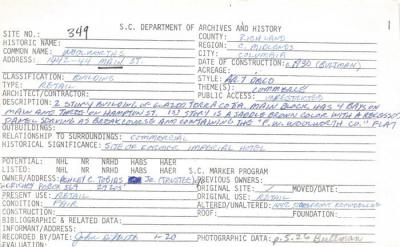 S.C. DEPARTMENT OF ARCHIVES AND HISTORY
SITE NO.: 349
COUNTY: RICHLAND
HISTORIC NAME:
REGION: C. MIDLANDS
COMMON NAME: WOOLWORTH'S
CITY: COLUMBIA
ADDRESS: 1442-44 MAIN ST.
DATE OF CONSTRUCTION: c. 1930 (BULTMAN)
ACREAGE:
CLASSIFICATION: BUILDING
STYLE: ART DECO
TYPE: RETAIL
THEME(S): COMMERCE
ARCHITECT/CONTRACTOR:
PUBLIC ACCESS: UNRESTRICTED
DESCRIPTION: 2 STORY BUILDING OF GLAZED TERRA COTTA. MAIN BLOCK HAS 4 BAYS ON
MAIN AND THREE ON HAMPTON ST. 1ST STORY IS A SADDLE BROWN COLOR WITH A RECESSED
SERVING AS BREAK AND CONTAINING THE "F.W. WOOLWORTH CO." FLAT
OUTBUILDINGS:
RELATIONSHIP TO SURROUNDINGS: COMMERCIAL
HISTORICAL SIGNIFICANCE: SITE OF FORMER IMPERIAL HOTEL
POTENTIAL: NHL NR NRHD HABS HAER
LISTED: NHL NR NRHD HABS HAER S.C. MARKER PROGRAM
OWNER/ADDRESS: ASHLEY C. TOBIAS JR. (TRUSTEE)
PREVIOUS OWNERS:
POBOX 569 29202
ORIGINAL SITE: MOVED/DATE:
PRESENT USE: RETAIL
ORIGINAL USE: RETAIL
CONDITION: FAIR
ALTERED/UNALTERED:
CONSTRUCTION:
ROOF: FOUNDATION:
BIBLIOGRAPHIC & RELATED DATA:
INFORMANT:
RECORDED BY/DATE: 1-20
PHOTOGRAPHIC DATA: p.5.26 Bultman